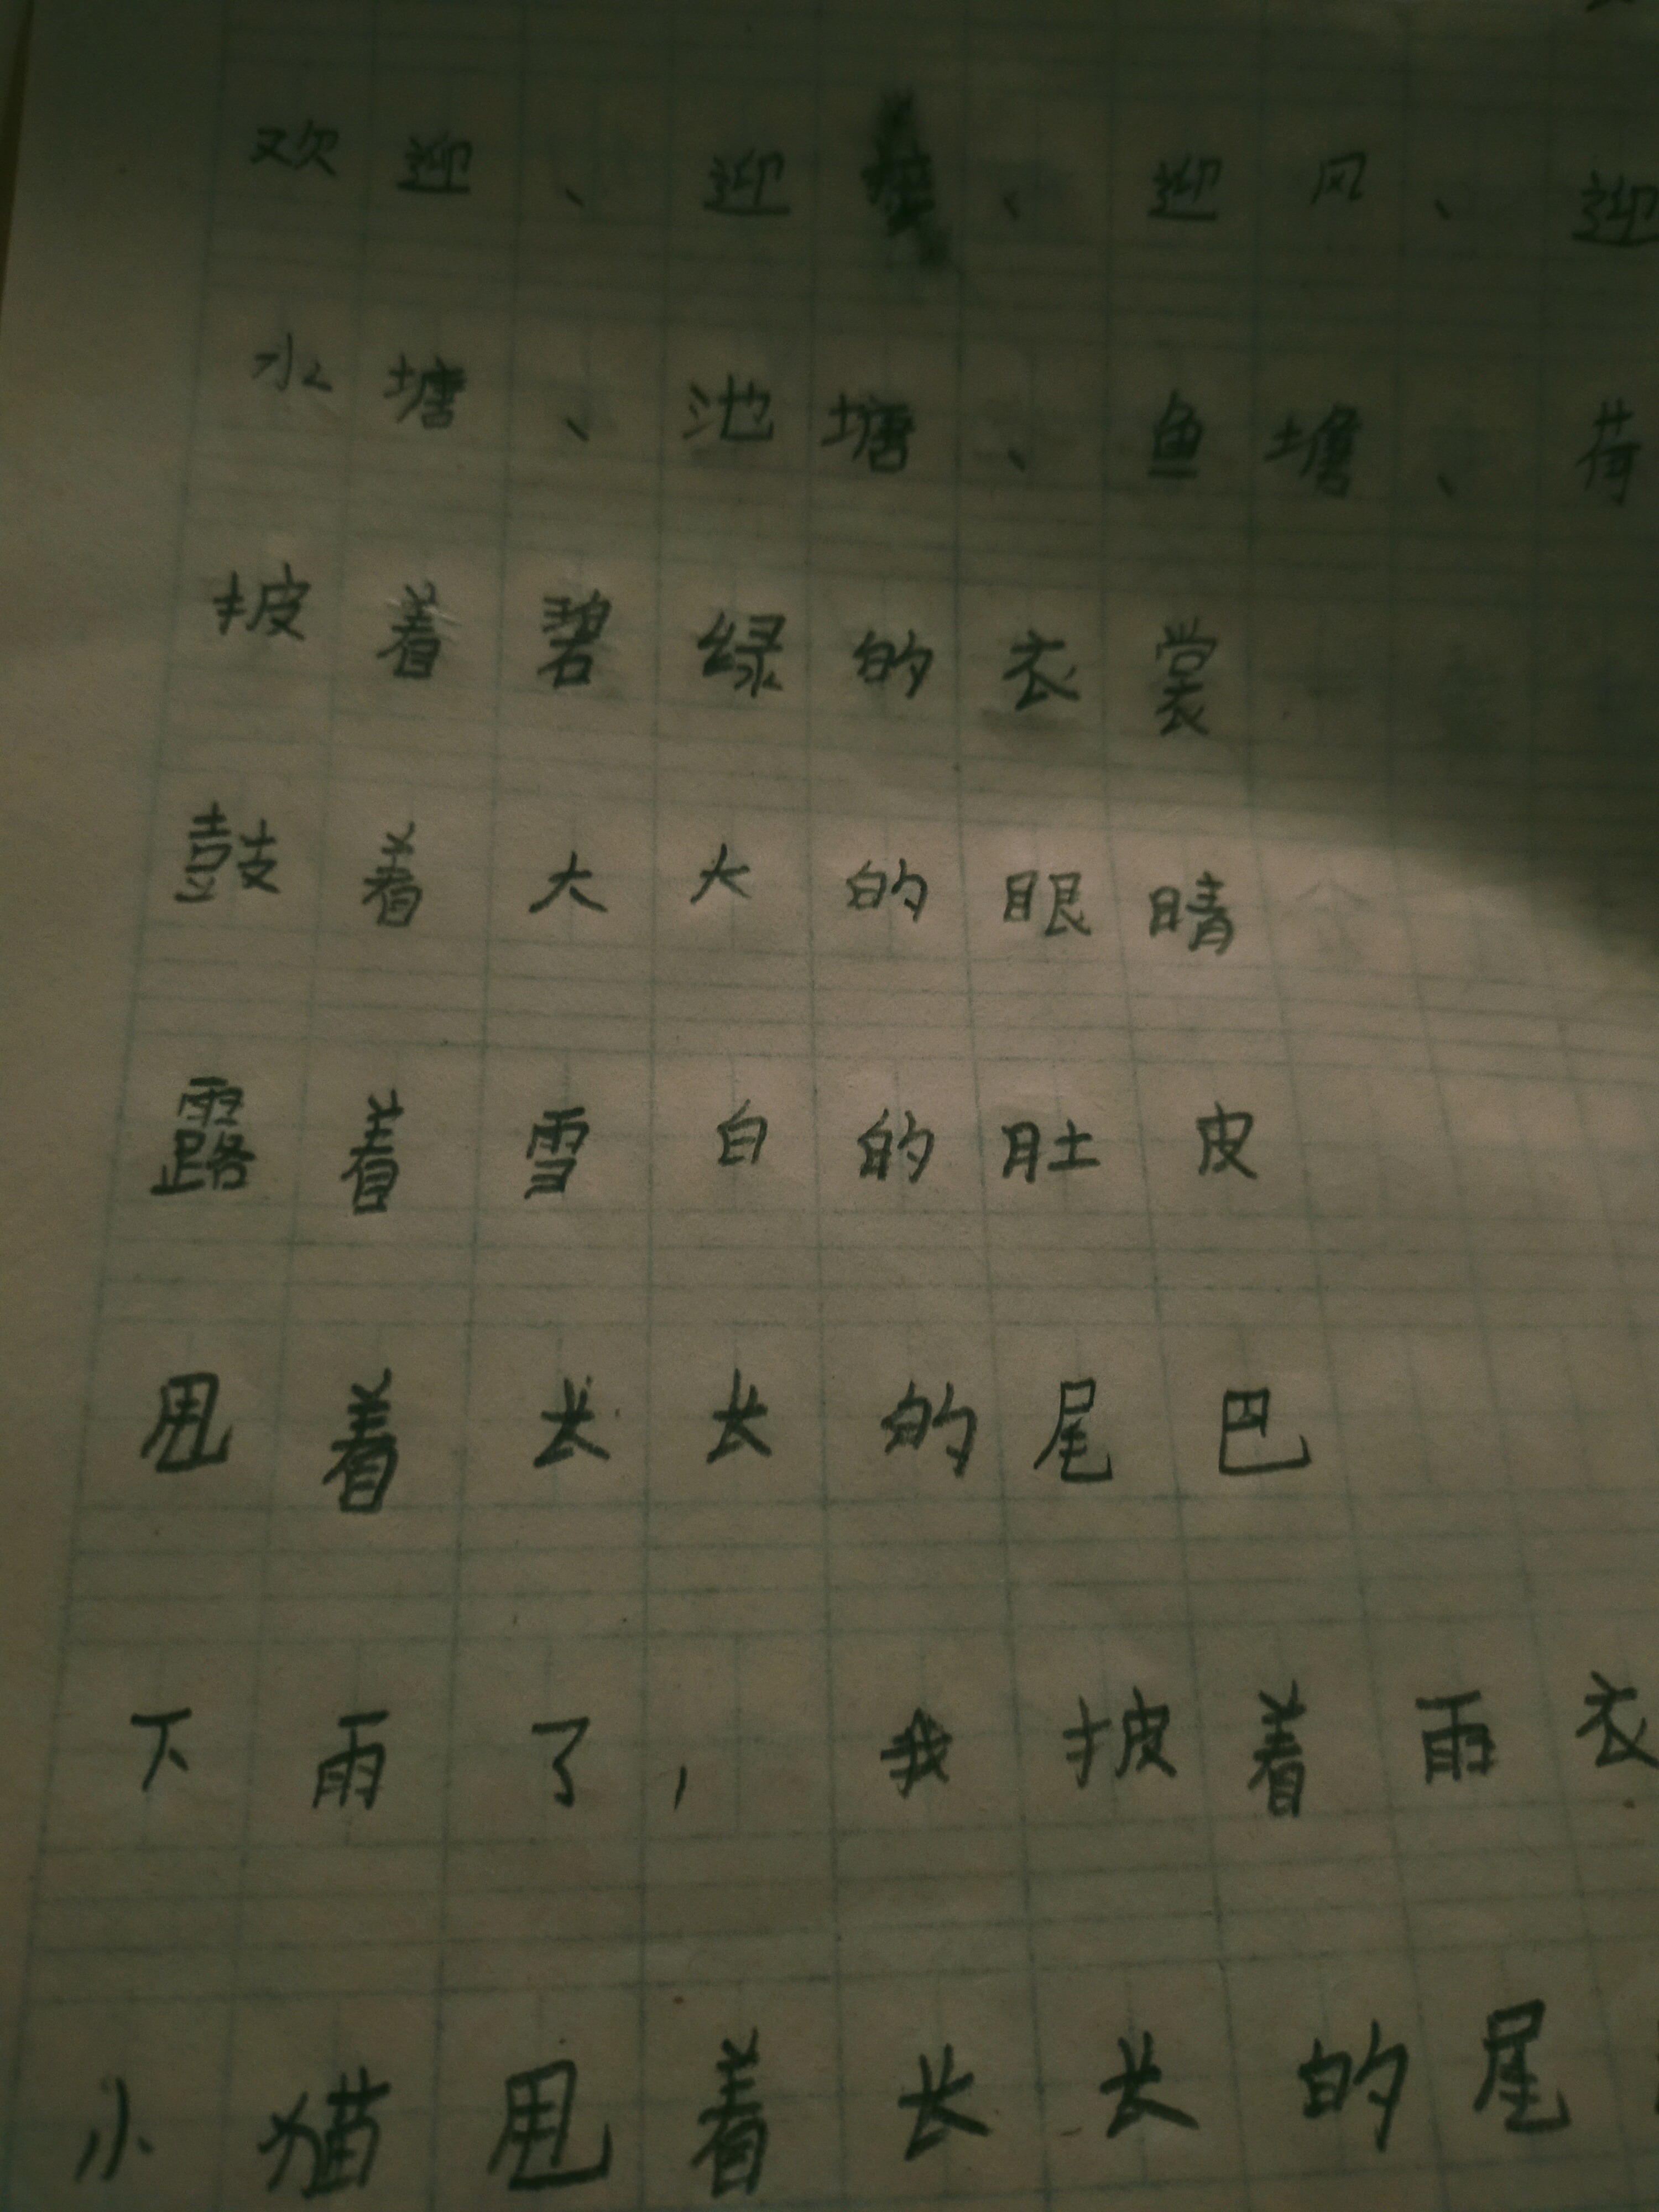 欢迎、迎、迎风、迎
水塘、池塘、鱼塘、荷
披着碧绿的衣裳
鼓着大大的眼睛
露着雪白的肚皮
甩着长长的尾巴
下雨了,我披着雨衣
小猫甩着长长的尾